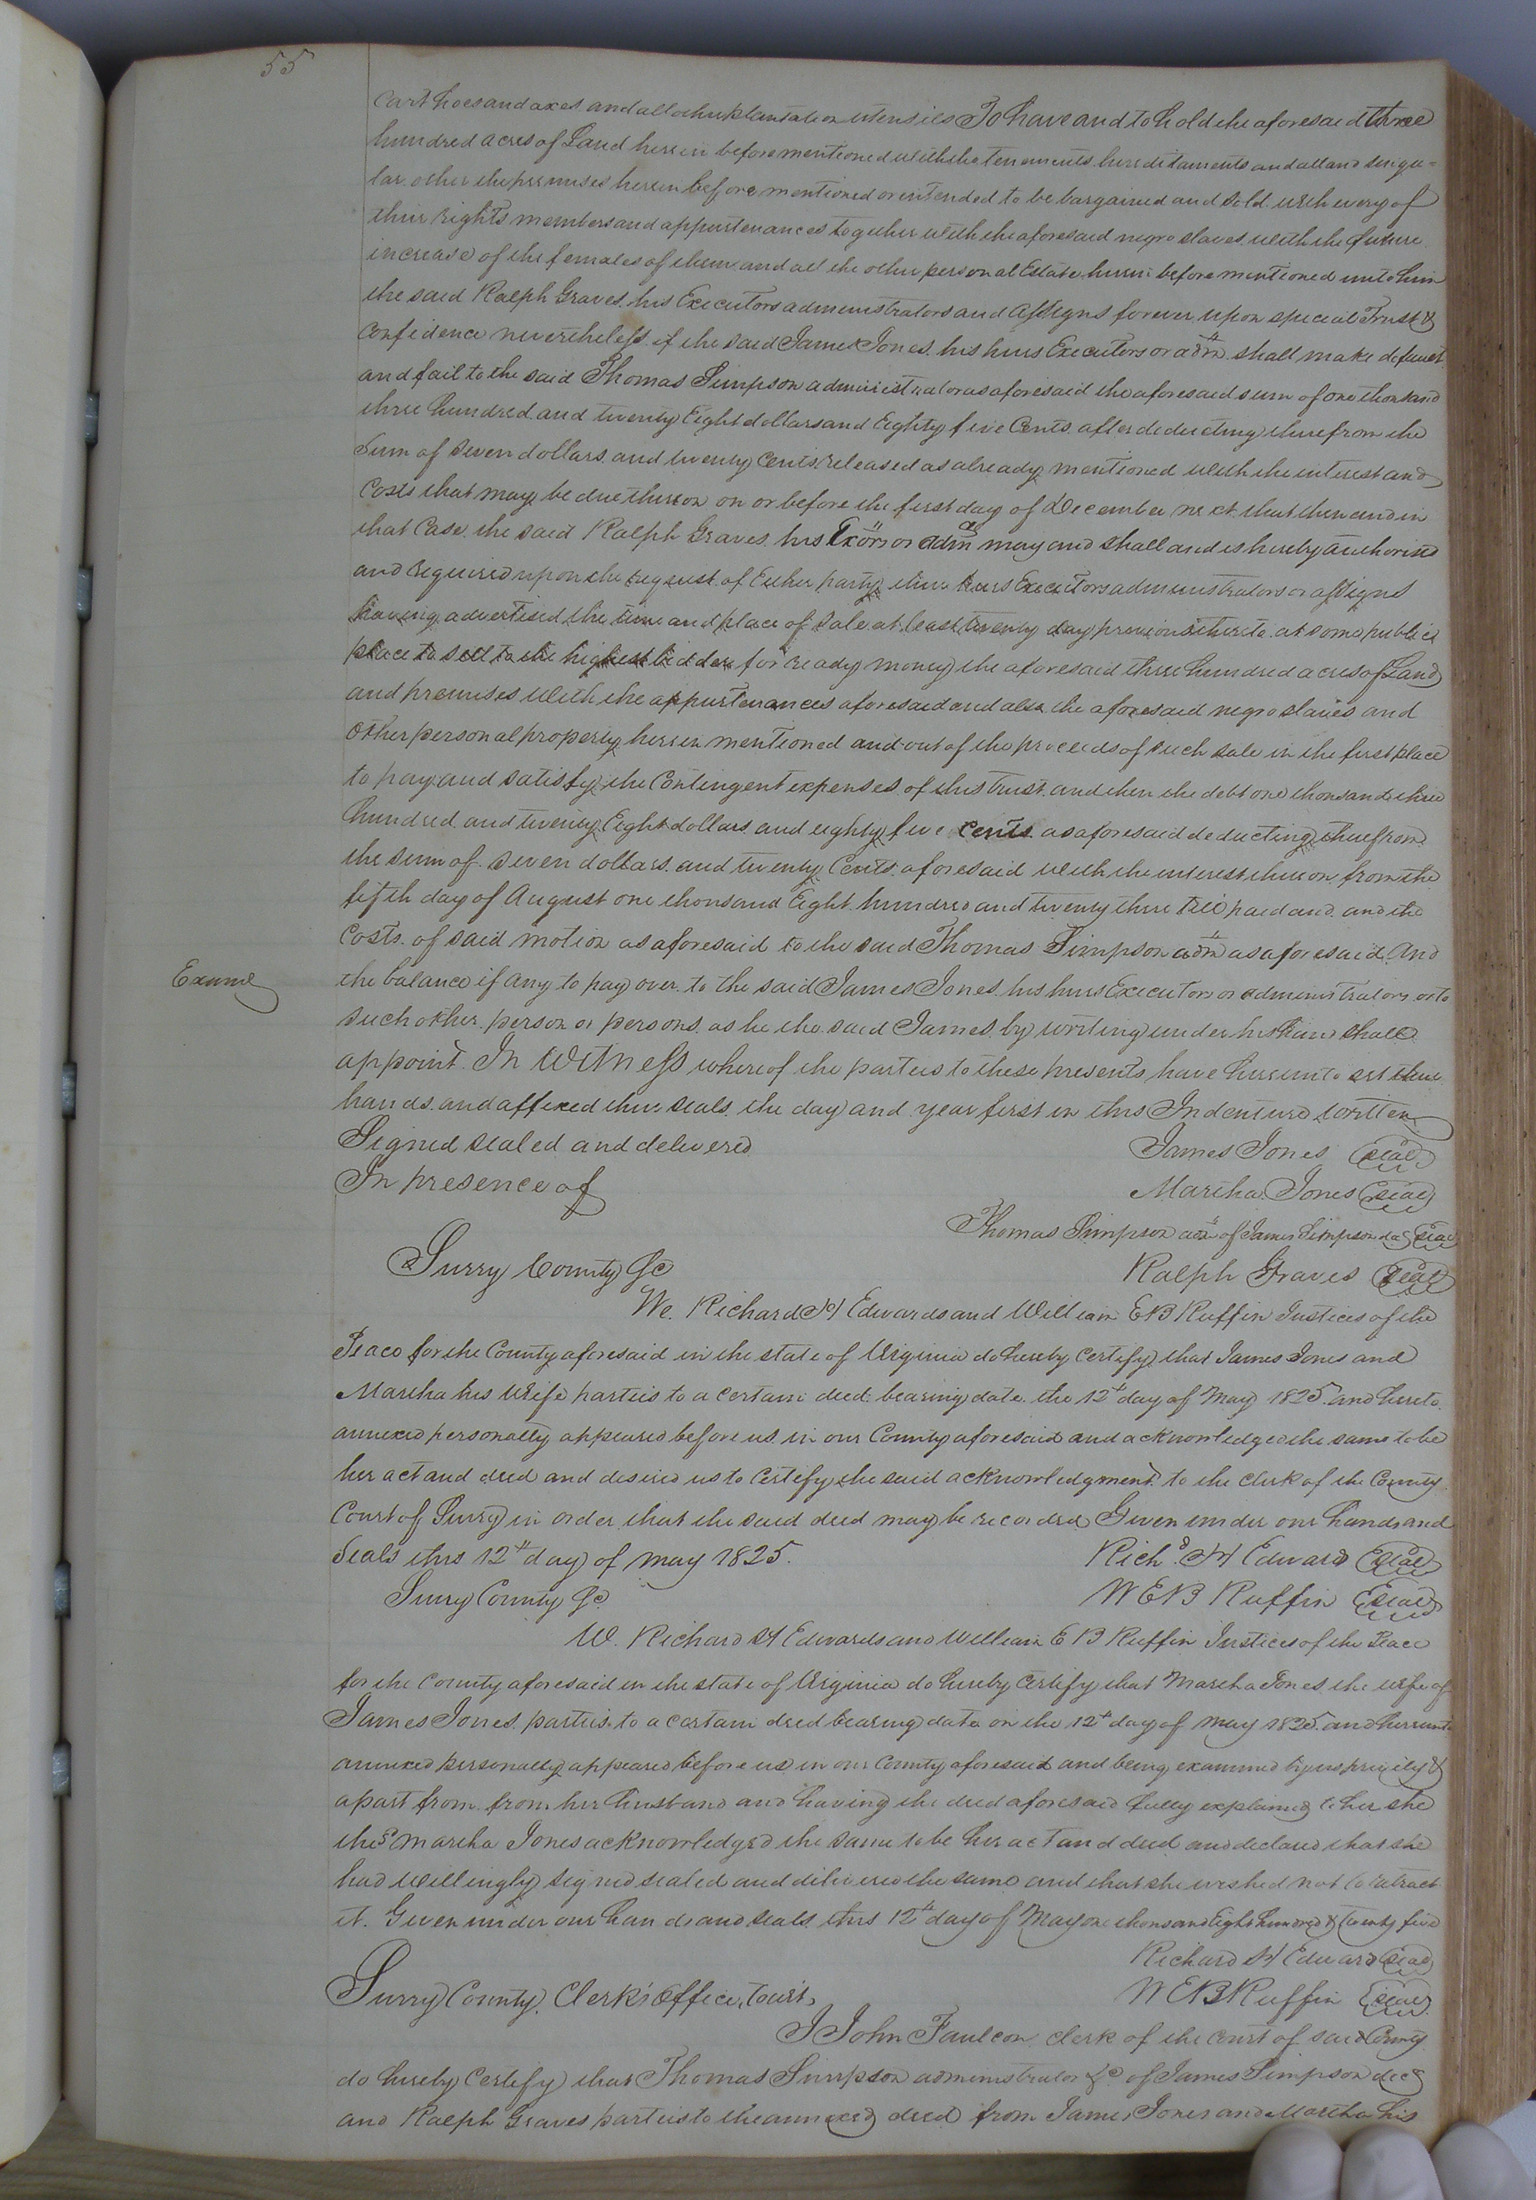 55
Cart hoes and axes and all other plantation utensils To have and to hold the aforesaid three
hundred acres of Land herein before mentioned with the tenements hereditaments and all and singu=
lar other the premises herein before mentioned or intended to be bargained and sold with every of
their rights members and appurtenances together with the aforesaid negro slaves with the future
increase of the females of them and all the other personal Estate herein before mentioned unto him
the said Ralph Graves his Executors administrators and assigns forever upon special Trust &
Confidence nevertheless if the said James Jones his heirs Executors or admr. shall make default
and fail to the said Thomas Simpson administrator as aforesaid the aforesaid sum of one thousand
three hundred and twenty Eight dollars and Eighty five Cents after deducting therefrom the
Sum of Seven dollars and twenty Cents released as already mentioned with the interest and
Costs that may be due thereon on or before the first day of December next that then and in
that Case the said Ralph Graves his Exors or admrs may and shall and is hereby authorised
and required upon the request of Either party their heirs Executors administrators or assigns
having advertised the time and place of sale at least twenty day previous thereto at some public
place to sell to the highest bidder for ready money the aforesaid three hundred acres of Land
and premises with the appurtenances aforesaid and also the aforesaid negro slaves and
Other personal property herein mentioned and out of the proceeds of such sale in the first place
to pay and satisfy the Contingent expenses of this trust and then the debt one thousand three
hundred and twenty Eight dollars and eighty five Cents as aforesaid deducting therefrom
the sum of seven dollars and twenty Cents aforesaid with the interest thereon from the
fifth day of August one thousand Eight hundred and twenty three till paid and and the
Costs of said motion as aforesaid to the said Thomas Simpson admr as aforesaid And
the balance if any to pay over to the said James Jones his heirs Executors or administrators or to
such other person or persons as he the said James by writing under his hand shall
appoint. In Witness whereof the parties to these presents have hereunto set their
hands and affixed their seals the day and year first in this Indenture written
Signed sealed and delivered James Jones Seal
In presence of Martha Jones Seal
Thomas Simpson adr of James Simpson dec Seal
Surry County Sc Ralph Graves Seal
We Richard H Edwards and William E B Ruffin Justices of the
Peace for the County aforesaid in the state of Virginia do hereby Certify that James Jones and
Martha his Wife parties to a certain deed bearing date the 12th day of May 1825 and hereto
annexed personally appeared before us in our County aforesaid and acknowledged the same to be
her act and deed and desired us to Certify the said acknowledgment to the Clerk of the County
Court of Surry in order that the said deed may be recorded Given under our hands and
Seals this 12th day of May 1825. Richd. H Edward Seal
Surry County Sc W E B Ruffin Seal
W. Richard H Edwards and William E B Ruffin Justices of the Peace
for the County aforesaid in the state of Virginia do hereby Certify that Martha Jones the wife of
James Jones parties to a certain deed bearing date on the 12th day of May 1825 and hereunto
annexed personally appeared before us in our County aforesaid and being examined by us privily &
apart from from her husband and having the deed aforesaid fully explained to her she
the sd Martha Jones acknowledged the same to be her act and deed and declared that she
had willingly signed sealed and delivered the same and that she wished not to retract
it. Given under our hands and seals this 12th day of May one thousand Eight hundred & twenty five
Richard H Edward Seal
Surry County Clerk's Office, Towit, W E B Ruffin Seal
I John Faulcon Clerk of the Court of said County
do hereby Certify that Thomas Simpson administrator &c of James Simpson decd
and Ralph Graves parties to the annexed deed from James Jones and Martha his